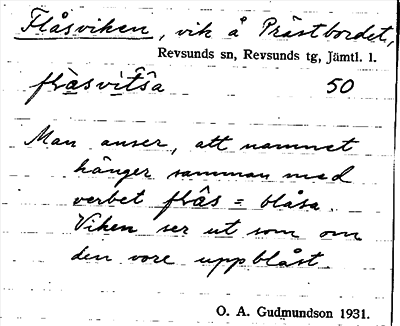 Flåsviken, vik å Prästbordet,
Revsunds sn, Revsunds tg, Jämtl. l.
50
Man anser, att namnet
hänger samman med
verbet flås = blåsa.
Viken ser ut som om
den vore uppblåst.
O. A. Gudmundson 1931.